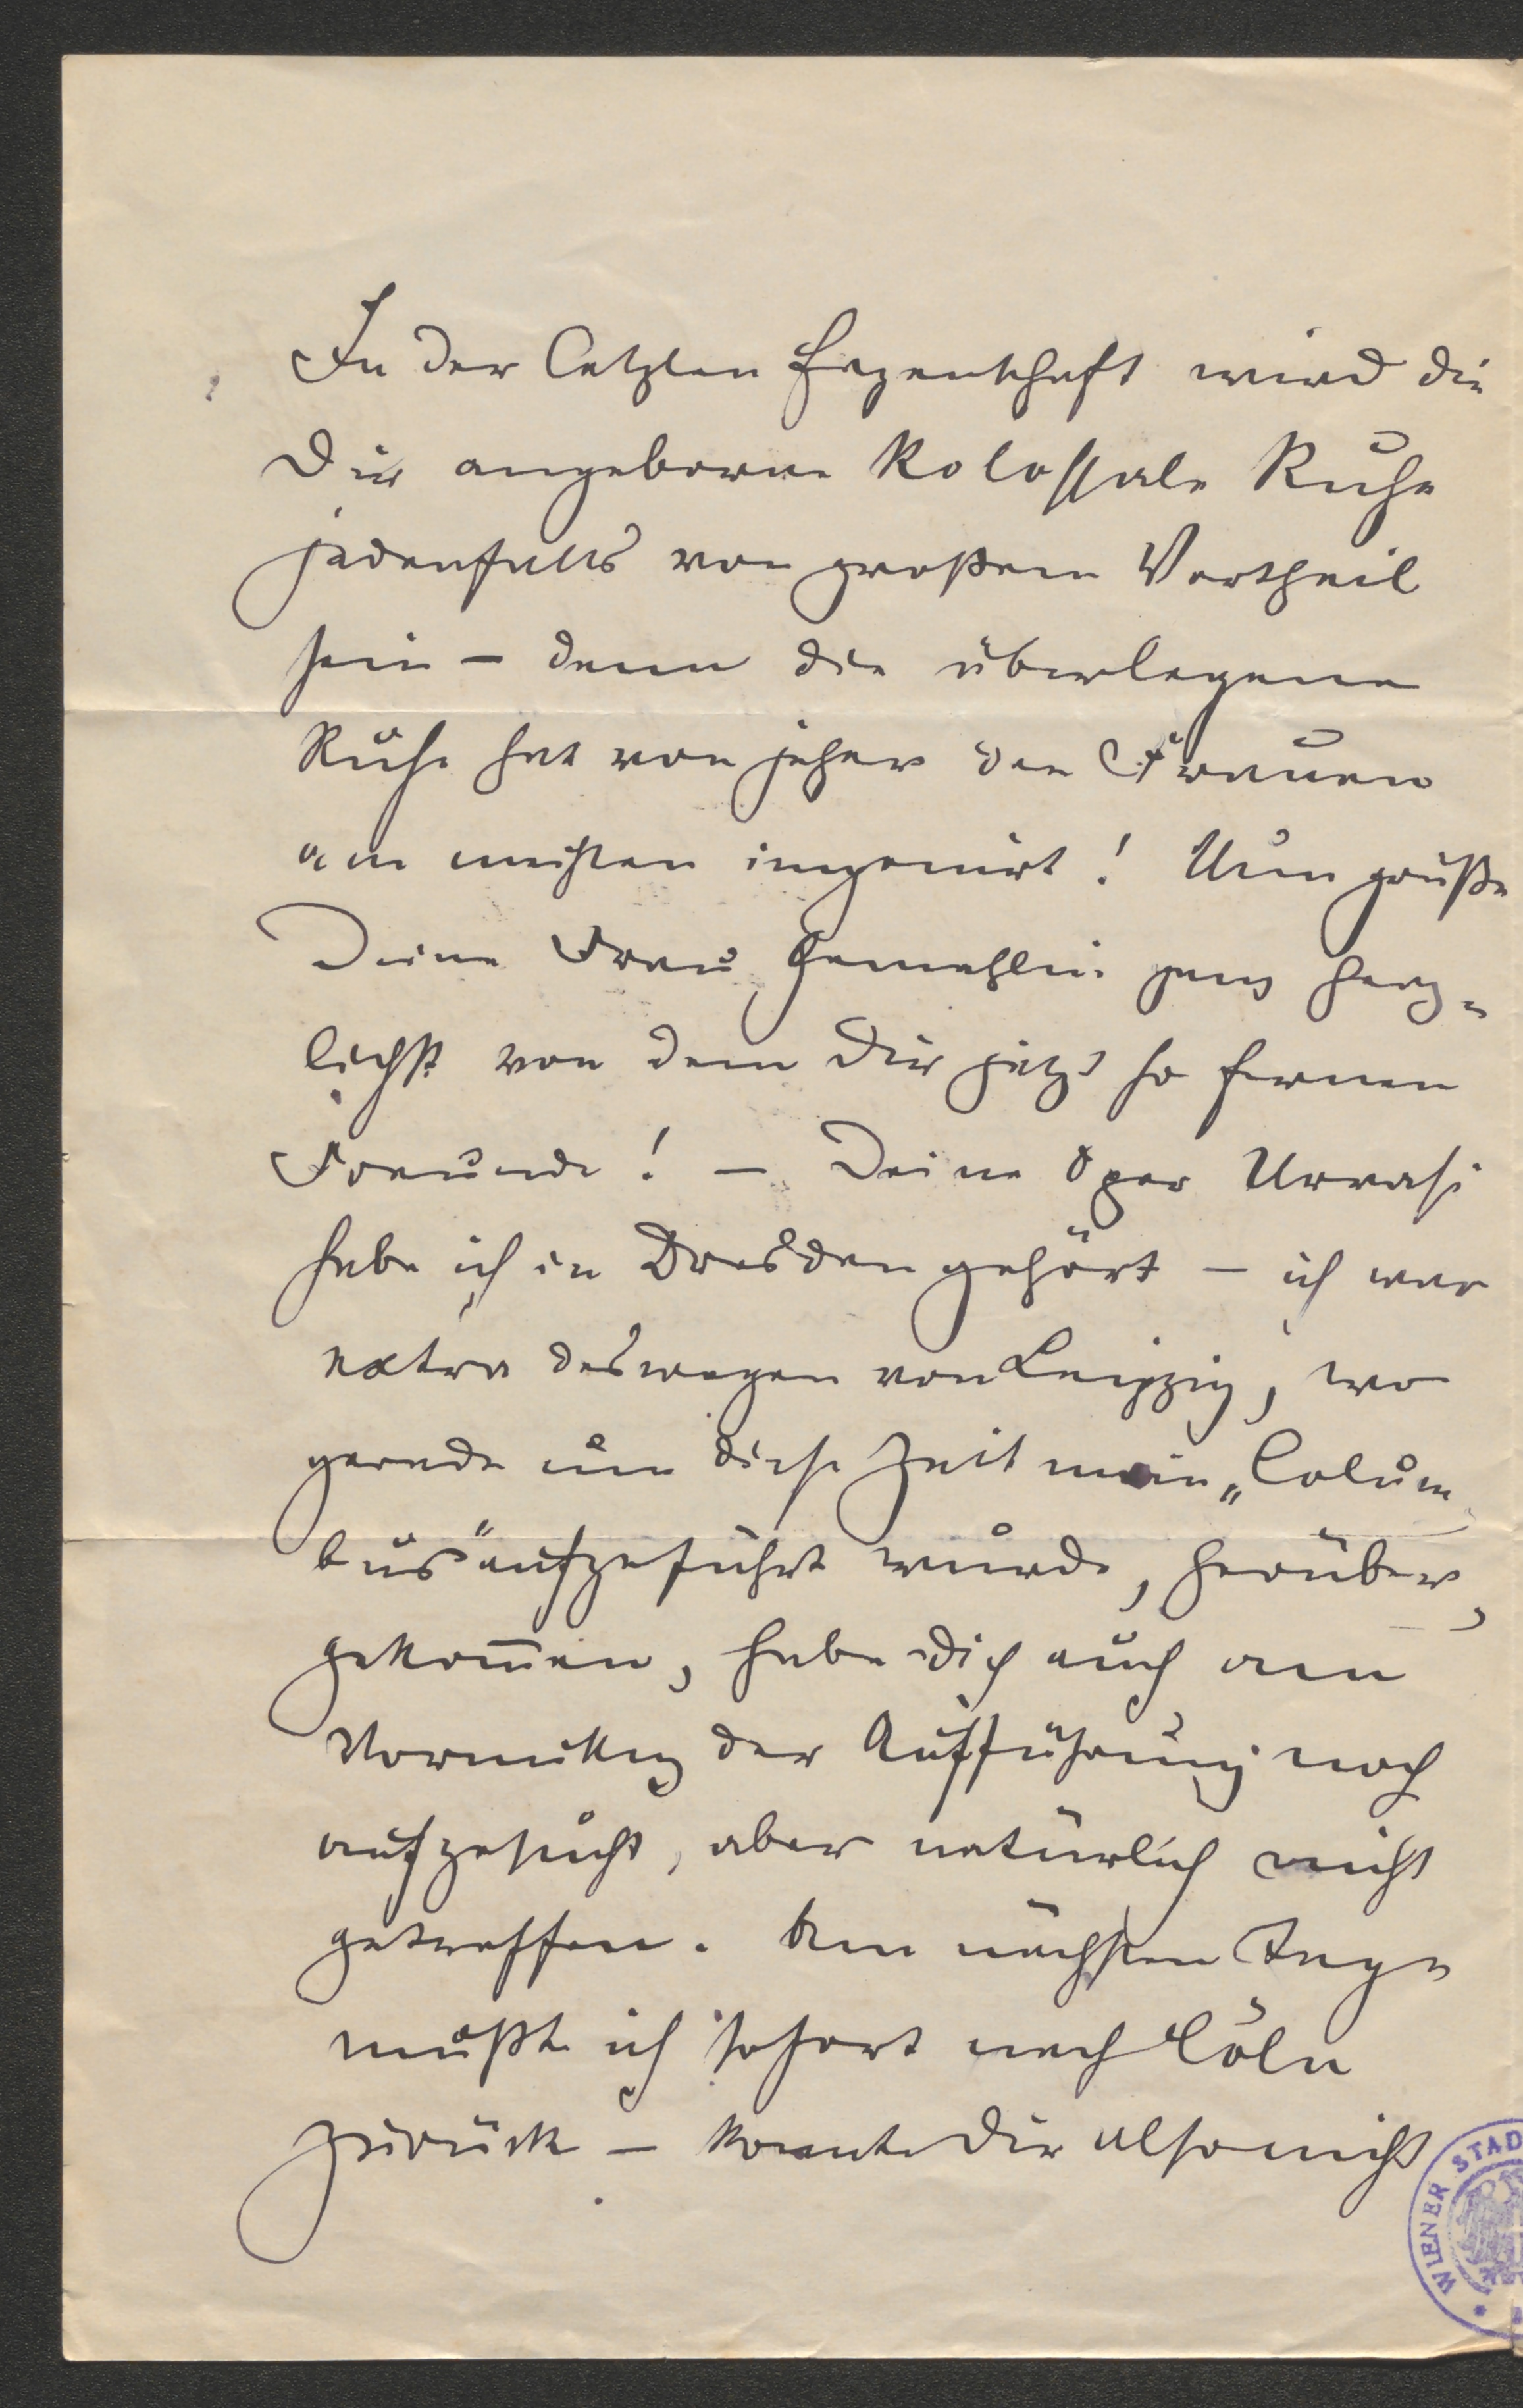 In der letzten Eigenschaft wird die
Dir angeborene kolossale Ruhe
jedenfalls von großem Vortheil
sein – denn die überlegene
Ruhe hat von jeher den Frauen
am meisten imponirt! Nun grüße
Deine Frau Gemahlin ganz herz-
lichst von dem Dir jetzt so fernen
Freunde! – Deine Oper Urvasi
habe ich in Dresden gehört – ich war
extra deswegen von Leipzig, wo
gerade um diese Zeit mein „Colum
bus" aufgeführt wurde, herüber-
gekom̄en, habe Dich auch am
Vormittag der Aufführung noch
aufgesucht, aber natürlich nicht
getroffen. Am nächsten Tage
mußte ich sofort nach Cöln
zurück – konnte Dir also nicht
WIENER STAD